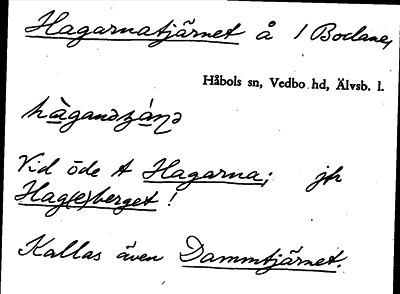 Hagarnatjärnet å 1 Bodane,
Håbols sn, Vedbo hd, Älvsb. l.
Vid öde t Hagarna; jfr
Hag(e)berget!
Kallas även Dammtjärnet.